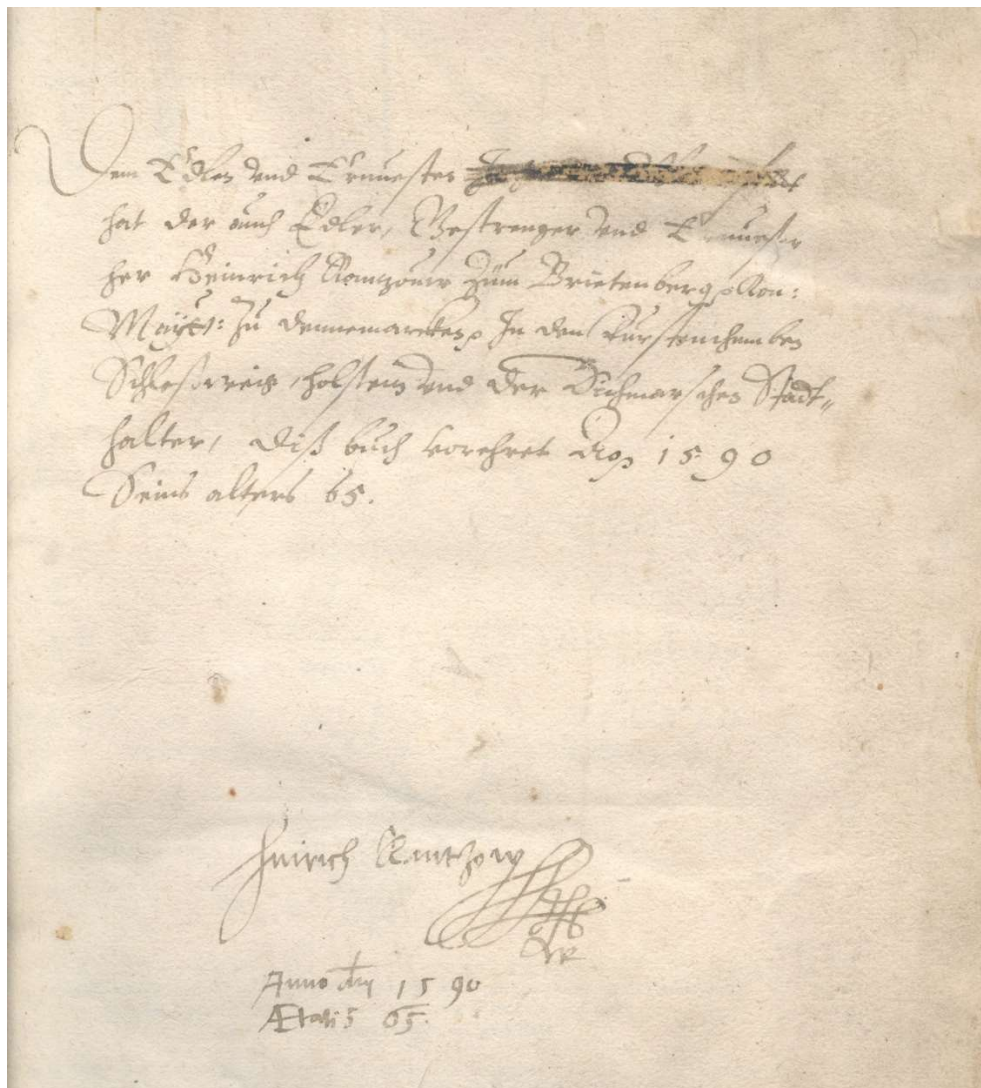 Dem Edlen vnd Ernuesten
hat der auch Edler, Gestrenger vnd Ernuester
her Heinrich Rantzouw zum Brietenberg, Kon:
Maytt: zu Dennemarcken, In den Furstenthumben
Schleßweig, Holstein vnd der Dithmarschen Stadt„
halter, diß buch vorehret Ao 1590
Seins alters 65.
Heinrich Rantzow
Anno dni 1590
Ætatis 65.